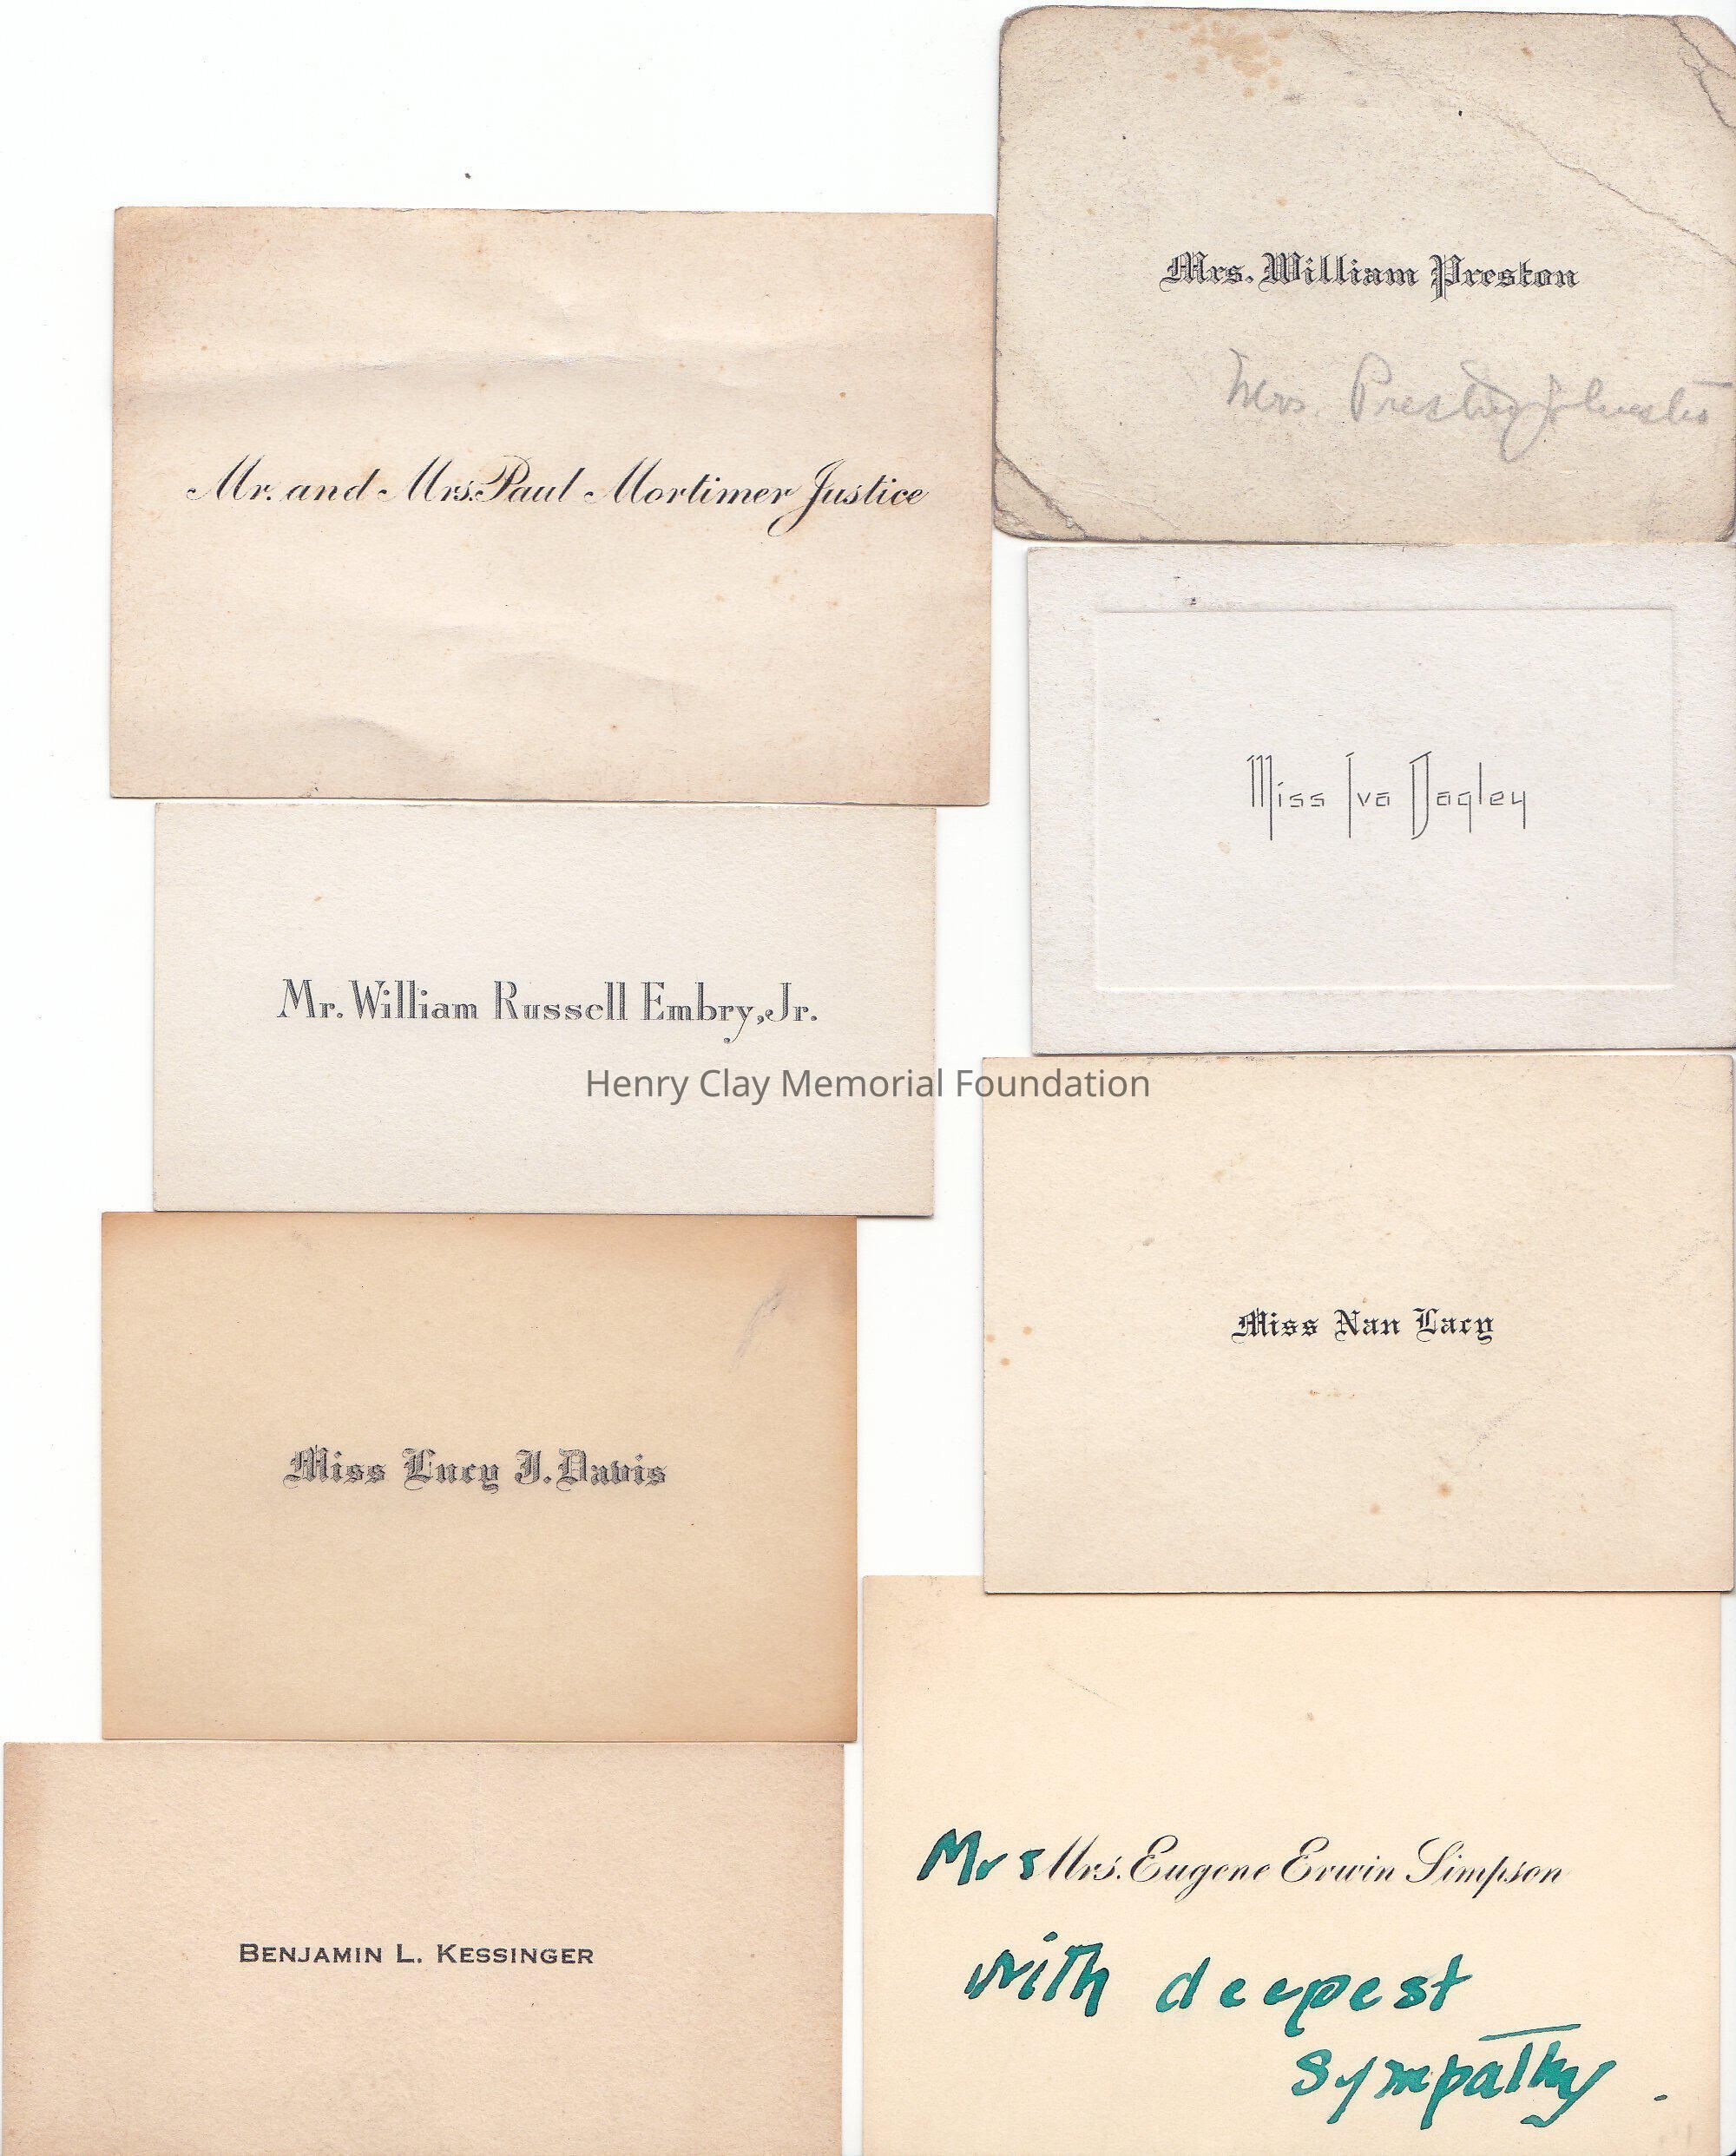 Mrs. William Preston
Mrs. Preston Johnston
Mr. and Mrs. Paul Mortimer Justice
Miss Iva Dagley
Mr. William Russell Embry, Jr.
Henry Clay Memorial Foundation
Miss Nan Lacy
Miss Lucy J. Davis
Mrs Mrs. Eugene Erwin Simpson
BENJAMIN L. KESSINGER
with deepest
sympathy.